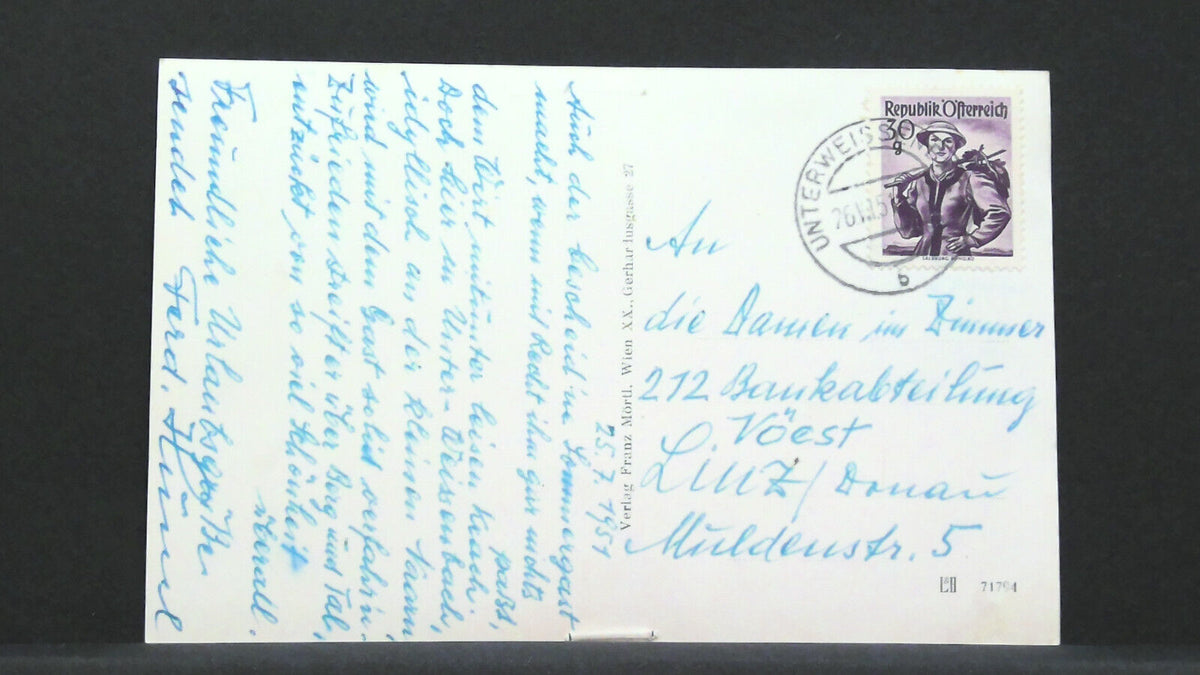 25.7.1951
Auch der bescheid'ne Sommergast
macht, wenn mit Recht ihm gar nichts
passt,
dem Wirt mitunter leisen Krach.
Doch hier in Unter-Weissenbach,
idyllisch an der kleinen Naarn
wird mit dem Gast solid verfahr'n.
Zufrieden streift er über Berg und Tal,
entzückt von so viel Schönheit
überall.
Freundliche Urlaubsgrüße
sendet Ferd.
Verlag Franz Mörtl, Wien XX., Gerhardusgasse 27
Republik Österreich
30
g
UNTERWEISS
b
An
die Damen im Zimmer
212 Bankabteilung
Vöest
LINZ/Donau
Muldenstr. 5
L&H 71794